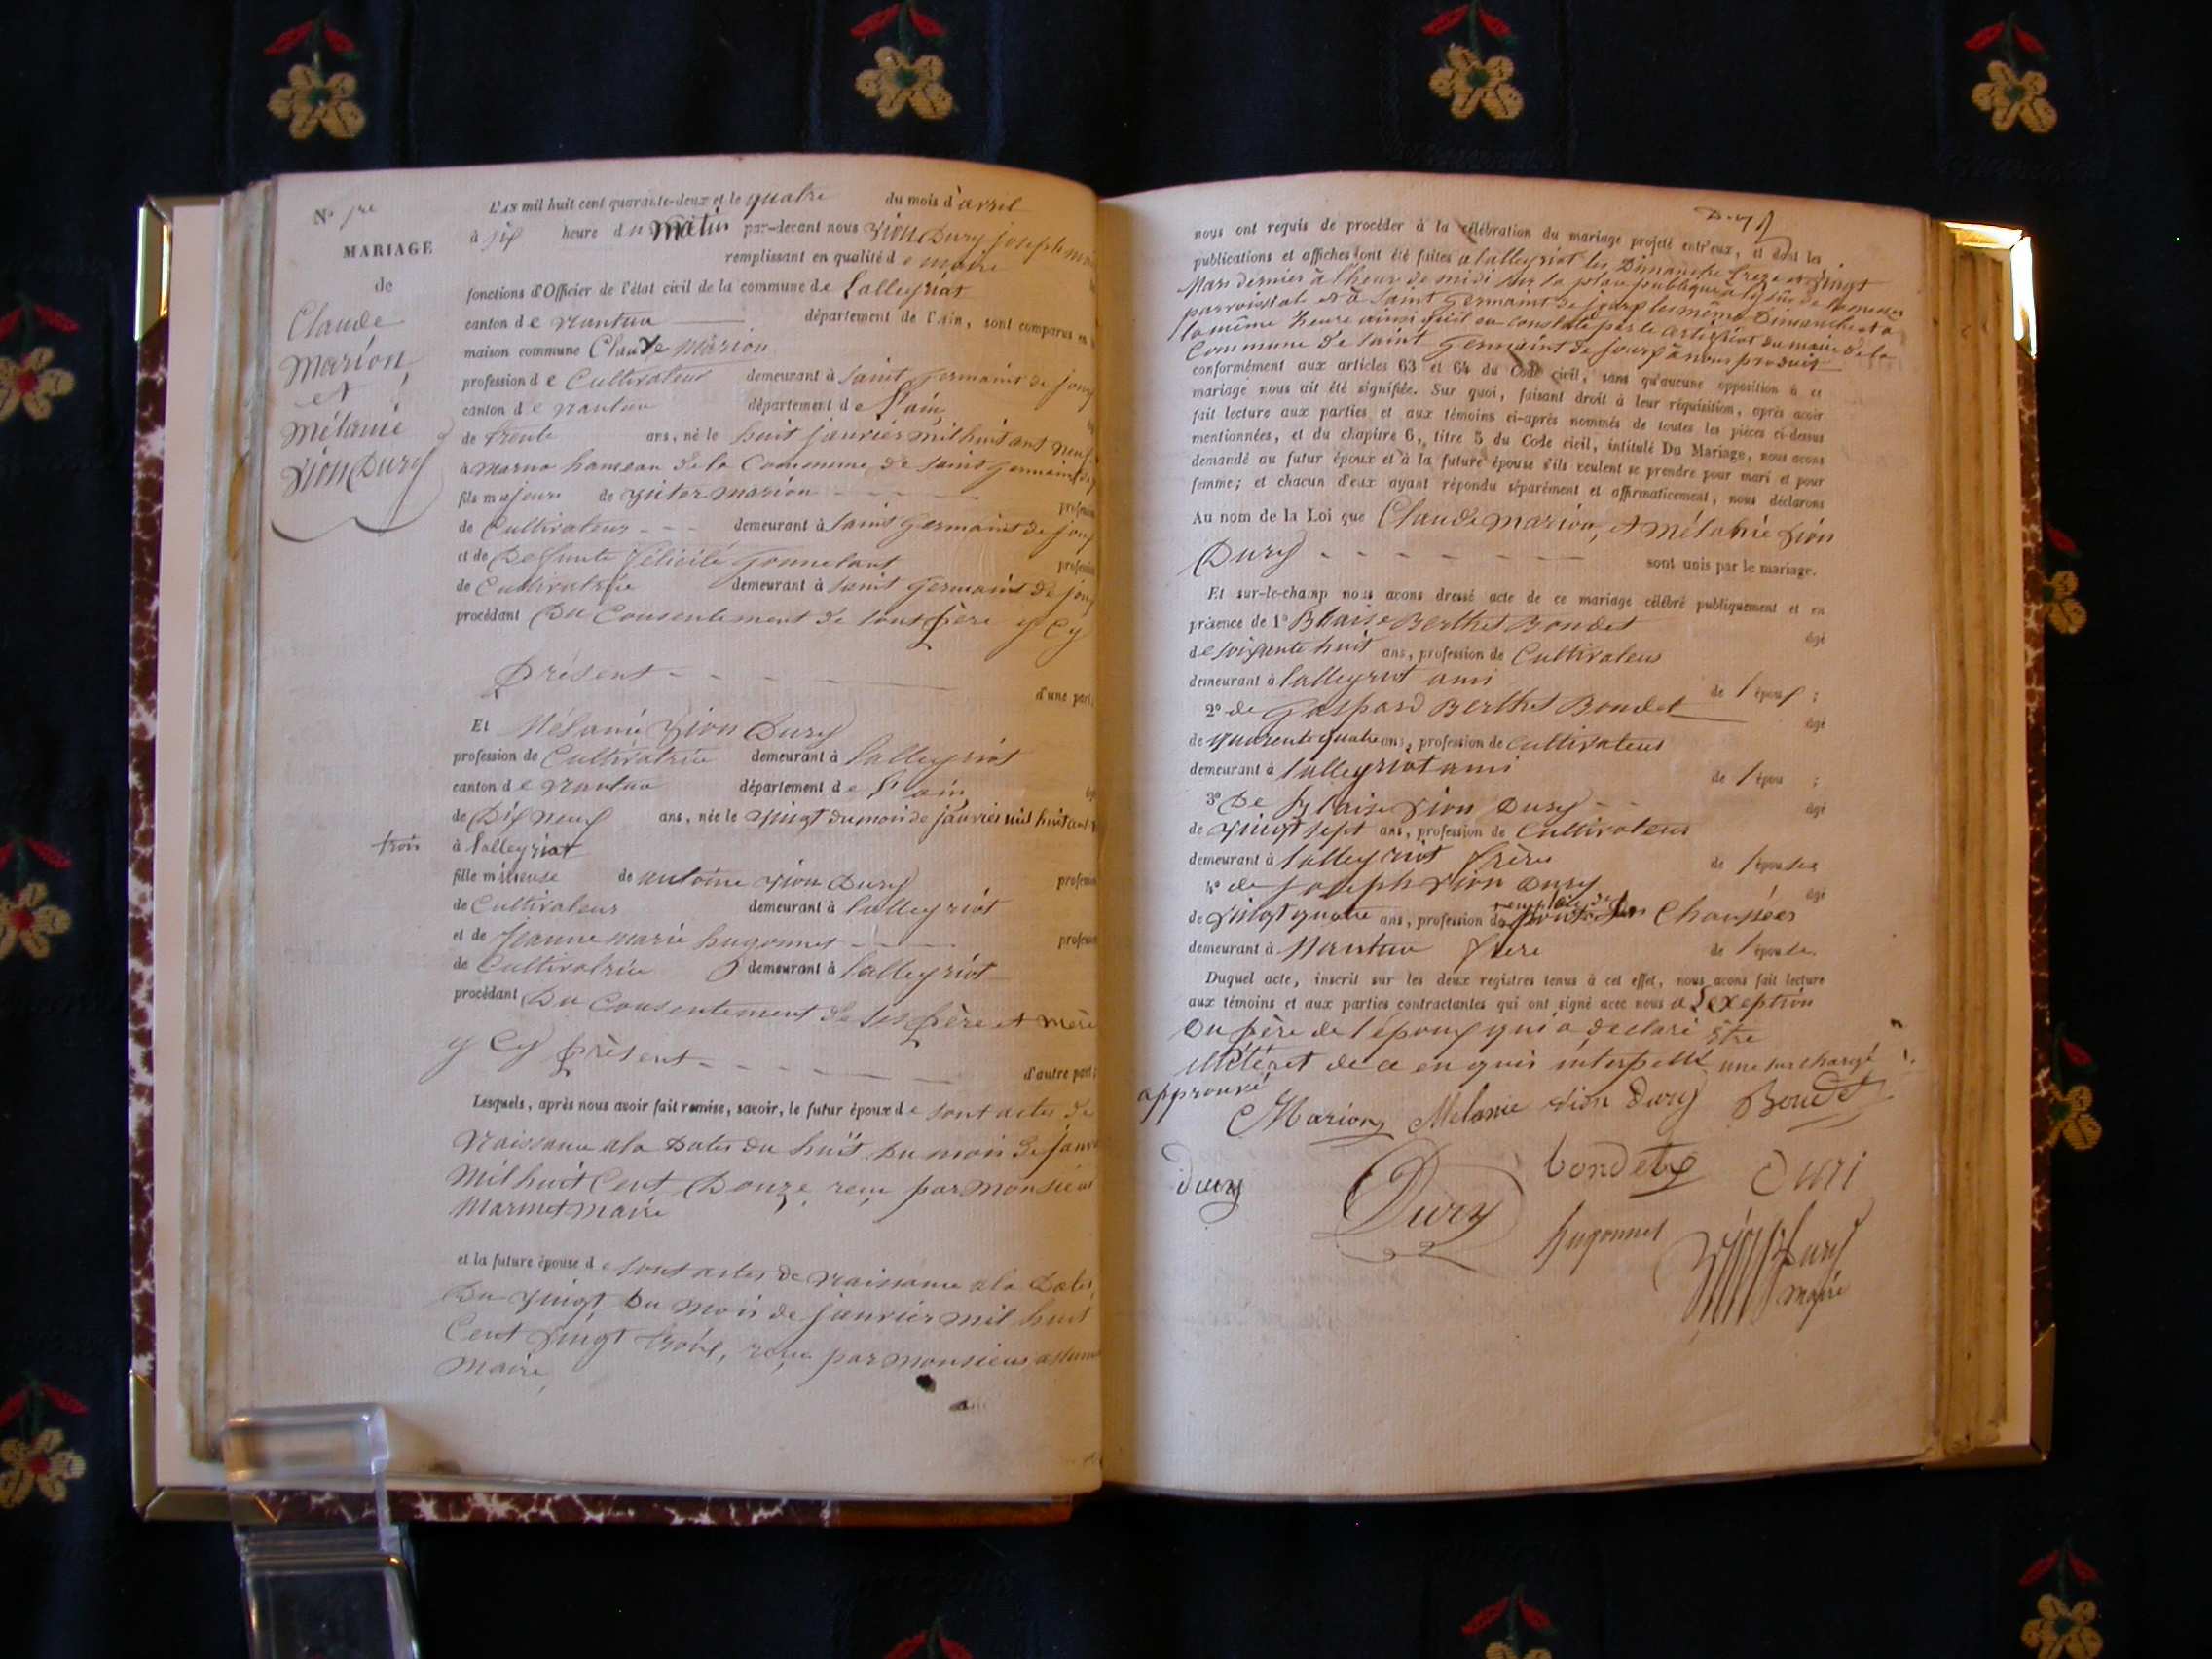 N° 1re
MARIAGE
de
Claude
Marion
et
Mélanie
Vion Dury
L'AN mil huit cent quarante-deux et le quatre du mois d'avril
à six heure du matin par-devant nous Vion Dury joseph
remplissant en qualité de maire
fonctions d'Officier de l'état civil de la commune de Lalleyriat
canton de Nantua département de l'Ain, sont comparus en
maison commune Claude Marion
profession de Cultivateur demeurant à Saint Germaint de joux
canton de Nantua département de l'ain
de trente ans, né le huit janvier mil huit cent
à marno hameau de la Commune de Saint Germaint
fils majeur de Victor Marion
de Cultivateur demeurant à Saint Germaint de joux
et de Defunte félicité
de Cultivatrice demeurant à Saint Germaint de joux
procédant Du Consentement de sont père y Cy
présent d'une part;
Et Mélanie Vion Dury
profession de Cultivatrice demeurant à Lalleyriat
canton de Nantua département de l'ain
de Dix neuf ans, née le Vingt du mois de janvier mil huit cent
trois à lalleyriat
fille mineuse de antoine Vion Dury
de Cultivateur demeurant à lalleyriat
et de Jeanne marie hugonnet
de Cultivatrice demeurant à lalleyriat
procédant Du Consentement de ses père et mère
y Cy présent d'autre part;
Lesquels, après nous avoir fait remise, savoir, le futur époux de sont actes de
Naissance ala Dates du huit Du mois de
Mil huit Cent Douze reçu par Monsieur
Marmet maire
et la future épouse de sont actes de Naissance ala Dates
Du Vingt Du Mois de janvier mil huit
Cent Vingt trois, reçu par Monsieur
Maire
nous ont requis de procéder à la célébration du mariage projeté entr'eux, et dont les
publications et affiches ont été faites a lalleyriat les Dimanche treze et Vingt
Mars dernier à l'heure de midi sur la place publique
parroissial et à Saint Germaint de joux les même Dimanche et a
la même heure ainsi qu'il en constate par le certificat du maire de la
Commune de Saint Germaint de joux à nous produit
conformément aux articles 63 et 64 du Code civil, sans qu'aucune opposition à ce
mariage nous ait été signifiée. Sur quoi, faisant droit à leur réquisition, après avoir
fait lecture aux parties et aux témoins ci-après nommés de toutes les pièces ci-dessus
mentionnées, et du chapitre 6, titre 5 du Code civil, intitulé Du Mariage, nous avons
demandé au futur époux et à la future épouse s'ils veulent se prendre pour mari et pour
femme; et chacun d'eux ayant répondu séparément et affirmativement, nous déclarons
Au nom de la Loi que Claude Marion, et Mélanie Vion
Dury sont unis par le mariage.
Et sur-le-champ nous avons dressé acte de ce mariage célébré publiquement et en
présence de 1° Blaise Berthet Bondet âgé
de soixante huit ans, profession de Cultivateur
demeurant à lalleyriat ami de l'époux;
2° de Gaspard Berthet Bondet âgé
de quarente quatre ans, profession de cultivateur
demeurant à lalleyriat ami de l'épou ;
3° De Blaise Vion Dury âgé
de Vingt sept ans, profession de Cultivateur
demeurant à lalleyriat frère de l'épouse
4° de joseph Vion Dury âgé
de Vingt quatre ans, profession de Chaussées
demeurant à Nantua frere de l'épouse.
Duquel acte, inscrit sur les deux registres tenus à cet effet, nous avons fait lecture
aux témoins et aux parties contractantes qui ont signé avec nous a l'exeption
Du père de l'époux qui a declaré être
illétéret de ce enquis interpellé une surchargé
approuvé
Marion Melanie Vion Dury Boudet
Dury Dury bondet Duri
hugonnet Vion Dury
maire